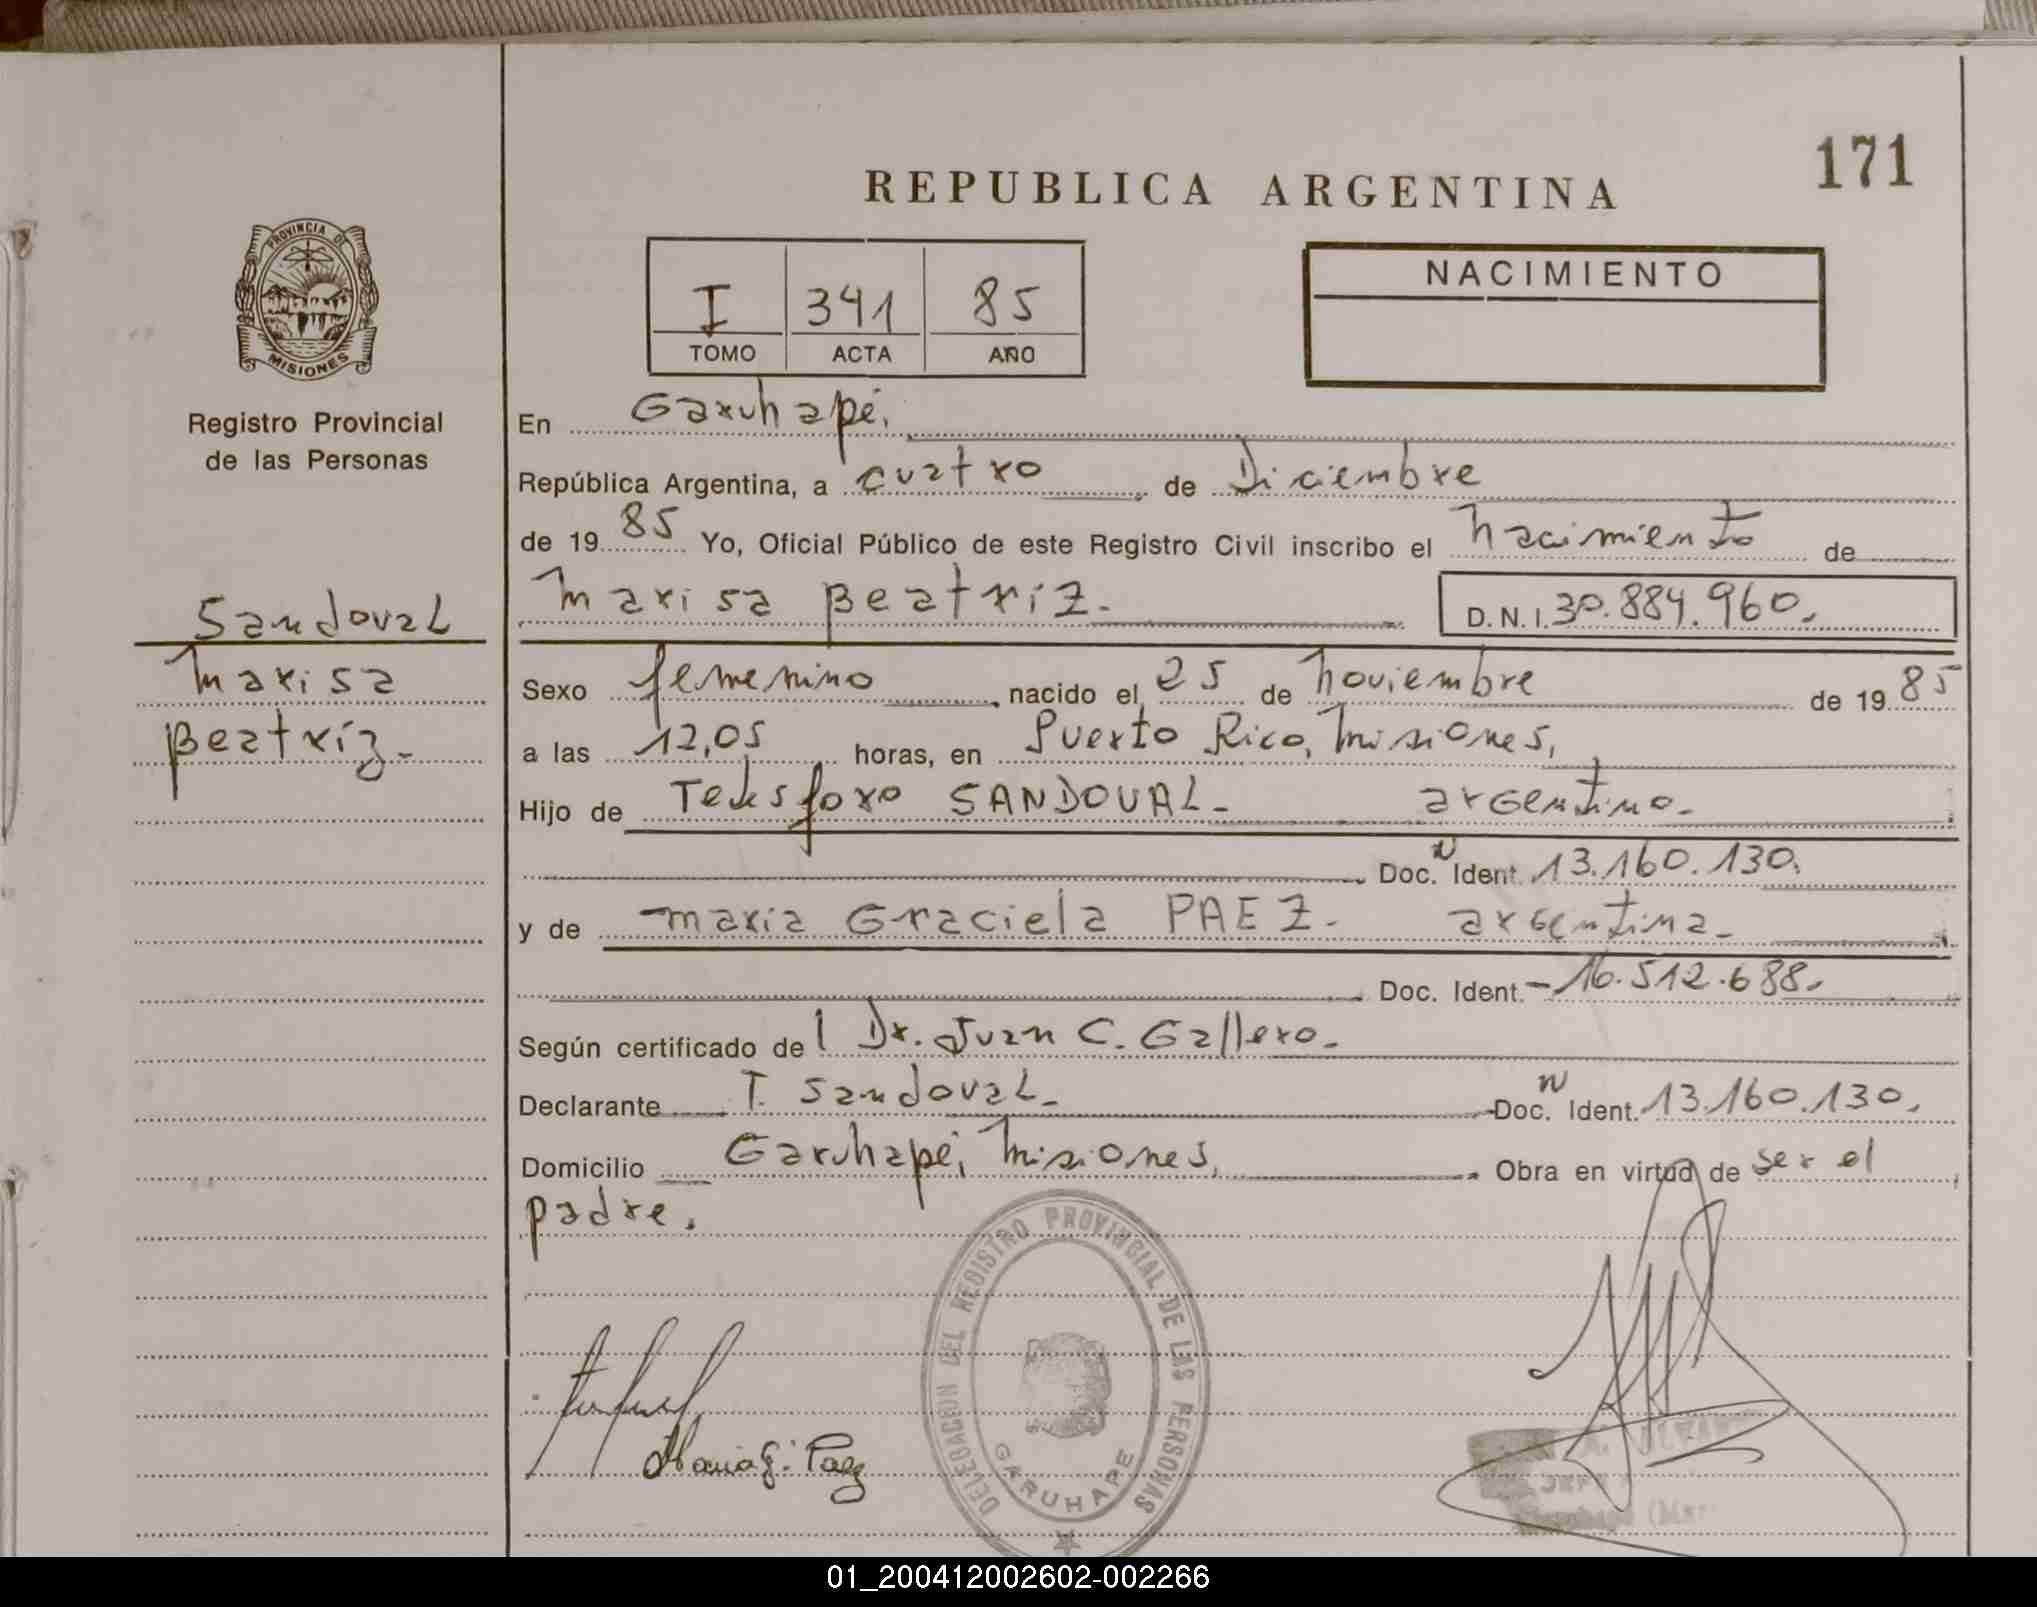 171
REPUBLICA ARGENTINA
PROVINCIA DE
MISIONES
I 341 85
TOMO ACTA AÑO
NACIMIENTO
Registro Provincial
de las Personas
Sandoval
Marisa
Beatríz.-
En Garuhapé,
República Argentina, a cuatro de Diciembre
de 19 85 Yo, Oficial Público de este Registro Civil inscribo el nacimiento de
Marisa Beatríz.- D.N.I. 30.884.960.
Sexo femenino nacido el 25 de Noviembre de 19 85
a las 12,05 horas, en Puerto Rico, Misiones,
Hijo de Telesforo SANDOVAL- argentino.-
Doc. N Ident. 13.160.130.
y de Maria Graciela PAEZ.- argentina.-
Doc. Ident.- 16.512.688.
Según certificado del Dr. Juan C. Gallero.-
Declarante T. Sandoval.- Doc. N Ident. 13.160.130.
Domicilio Garuhapé, Misiones, Obra en virtud de ser el
padre.
Maria G. Paez
DELEGACION DEL REGISTRO PROVINCIAL DE LAS PERSONAS
GARUHAPE
01_200412002602-002266